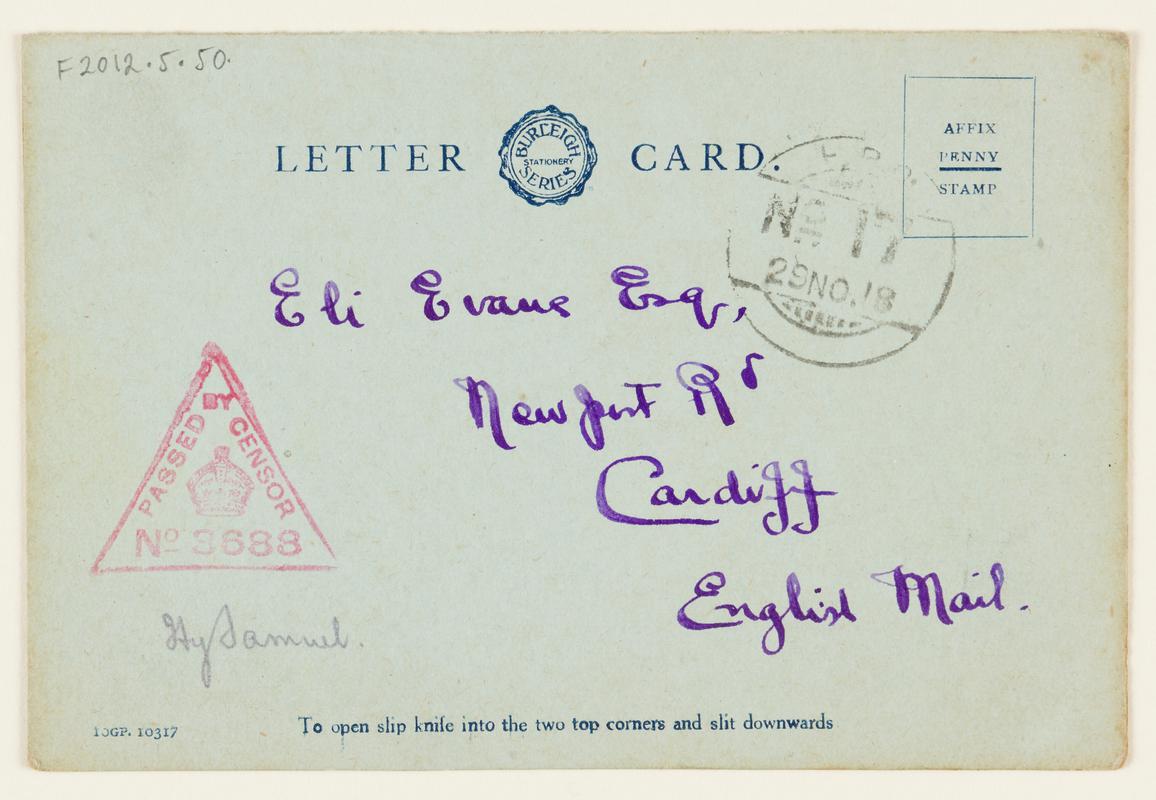 F2012.5.50.
LETTER CARD.
BURLEIGH
STATIONERY
SERIES
AFFIX
PENNY
STAMP
Nº 17
29NO.18
Eli Evans Esq,
Newport Rd
Cardiff
English Mail.
PASSED BY CENSOR
Nº 3688
Hy Samuel.
To open slip knife into the two top corners and slit downwards
10GP. 10317